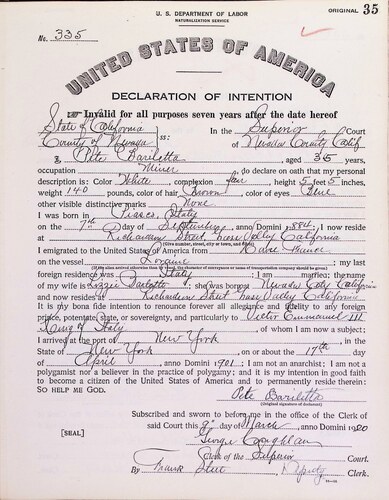 U. S. DEPARTMENT OF LABOR
NATURALIZATION SERVICE
ORIGINAL 35
No. 335
UNITED STATES OF AMERICA
DECLARATION OF INTENTION
Invalid for all purposes seven years after the date hereof
State of California
County of Nevada
ss:
In the Superior Court
of Nevada County Calif
I, Pete Bariletta, aged 35 years,
occupation Miner, do declare on oath that my personal
description is: Color White, complexion fair, height 5 feet 5 inches,
weight 140 pounds, color of hair Brown, color of eyes Blue
other visible distinctive marks None
I was born in Italy
on the 7th day of September, anno Domini 1884; I now reside
at Richardson Street, Grass Valley California
(Give number, street, city or town, and State.)
I emigrated to the United States of America from Havre France
on the vessel Loraine; my last
(If the alien arrived otherwise than by vessel, the character of conveyance or name of transportation company should be given.)
foreign residence was Italy
I am married; the name
of my wife is Lizzie; she was born at Nevada City California
and now resides at Richardson Street Grass Valley California
It is my bona fide intention to renounce forever all allegiance and fidelity to any foreign
prince, potentate, state, or sovereignty, and particularly to Victor Emmanuel III
King of Italy, of whom I am now a subject;
I arrived at the port of New York, in the
State of New York, on or about the 17th day
of April, anno Domini 1901; I am not an anarchist; I am not a
polygamist nor a believer in the practice of polygamy; and it is my intention in good faith
to become a citizen of the United States of America and to permanently reside therein:
SO HELP ME GOD.
Pete Bariletta
(Original signature of declarant.)
Subscribed and sworn to before me in the office of the Clerk of
[SEAL]
said Court this 9" day of March, anno Domini 1920
George Coughlan
Clerk of the Superior Court.
By Frank Steel, Deputy Clerk.